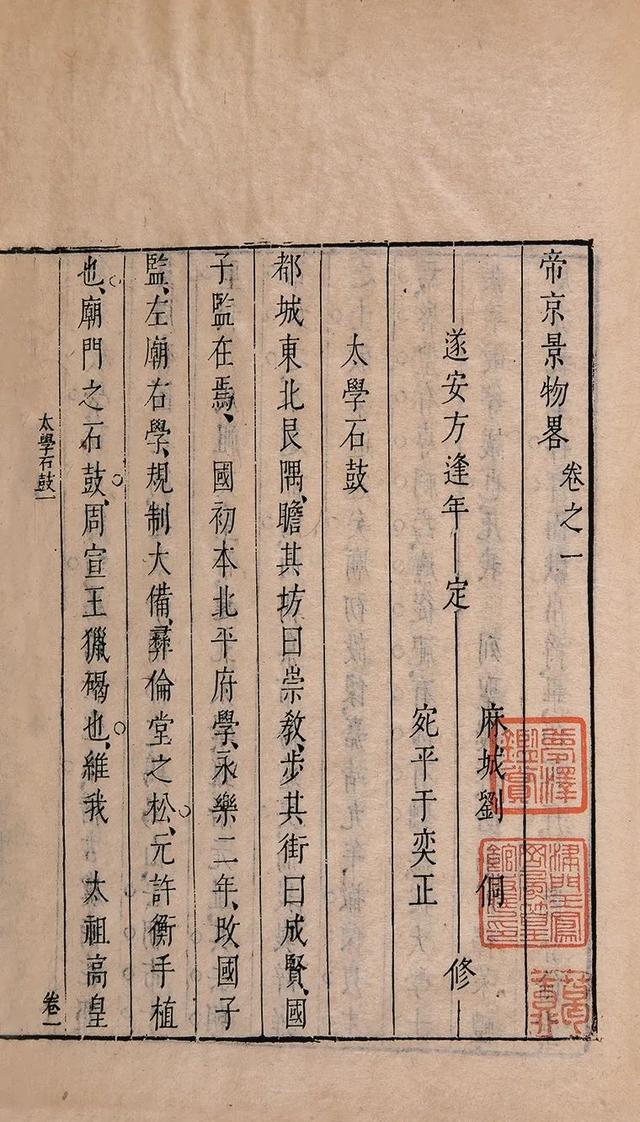 帝京景物畧 卷之一
遂安方逢年 定
麻城劉 侗
宛平于奕正
修
太學石鼓
都城東北艮隅、瞻其坊曰崇教、步其街曰成賢、國
子監在焉、國初本北平府學、永樂二年、改國子
監、左廟右學、規制大備、彝倫堂之松、元許衡手植
也、廟門之石鼓、周宣王獵碣也、維我 太祖高皇
太學石鼓一
卷一
夢澤
鑑賞